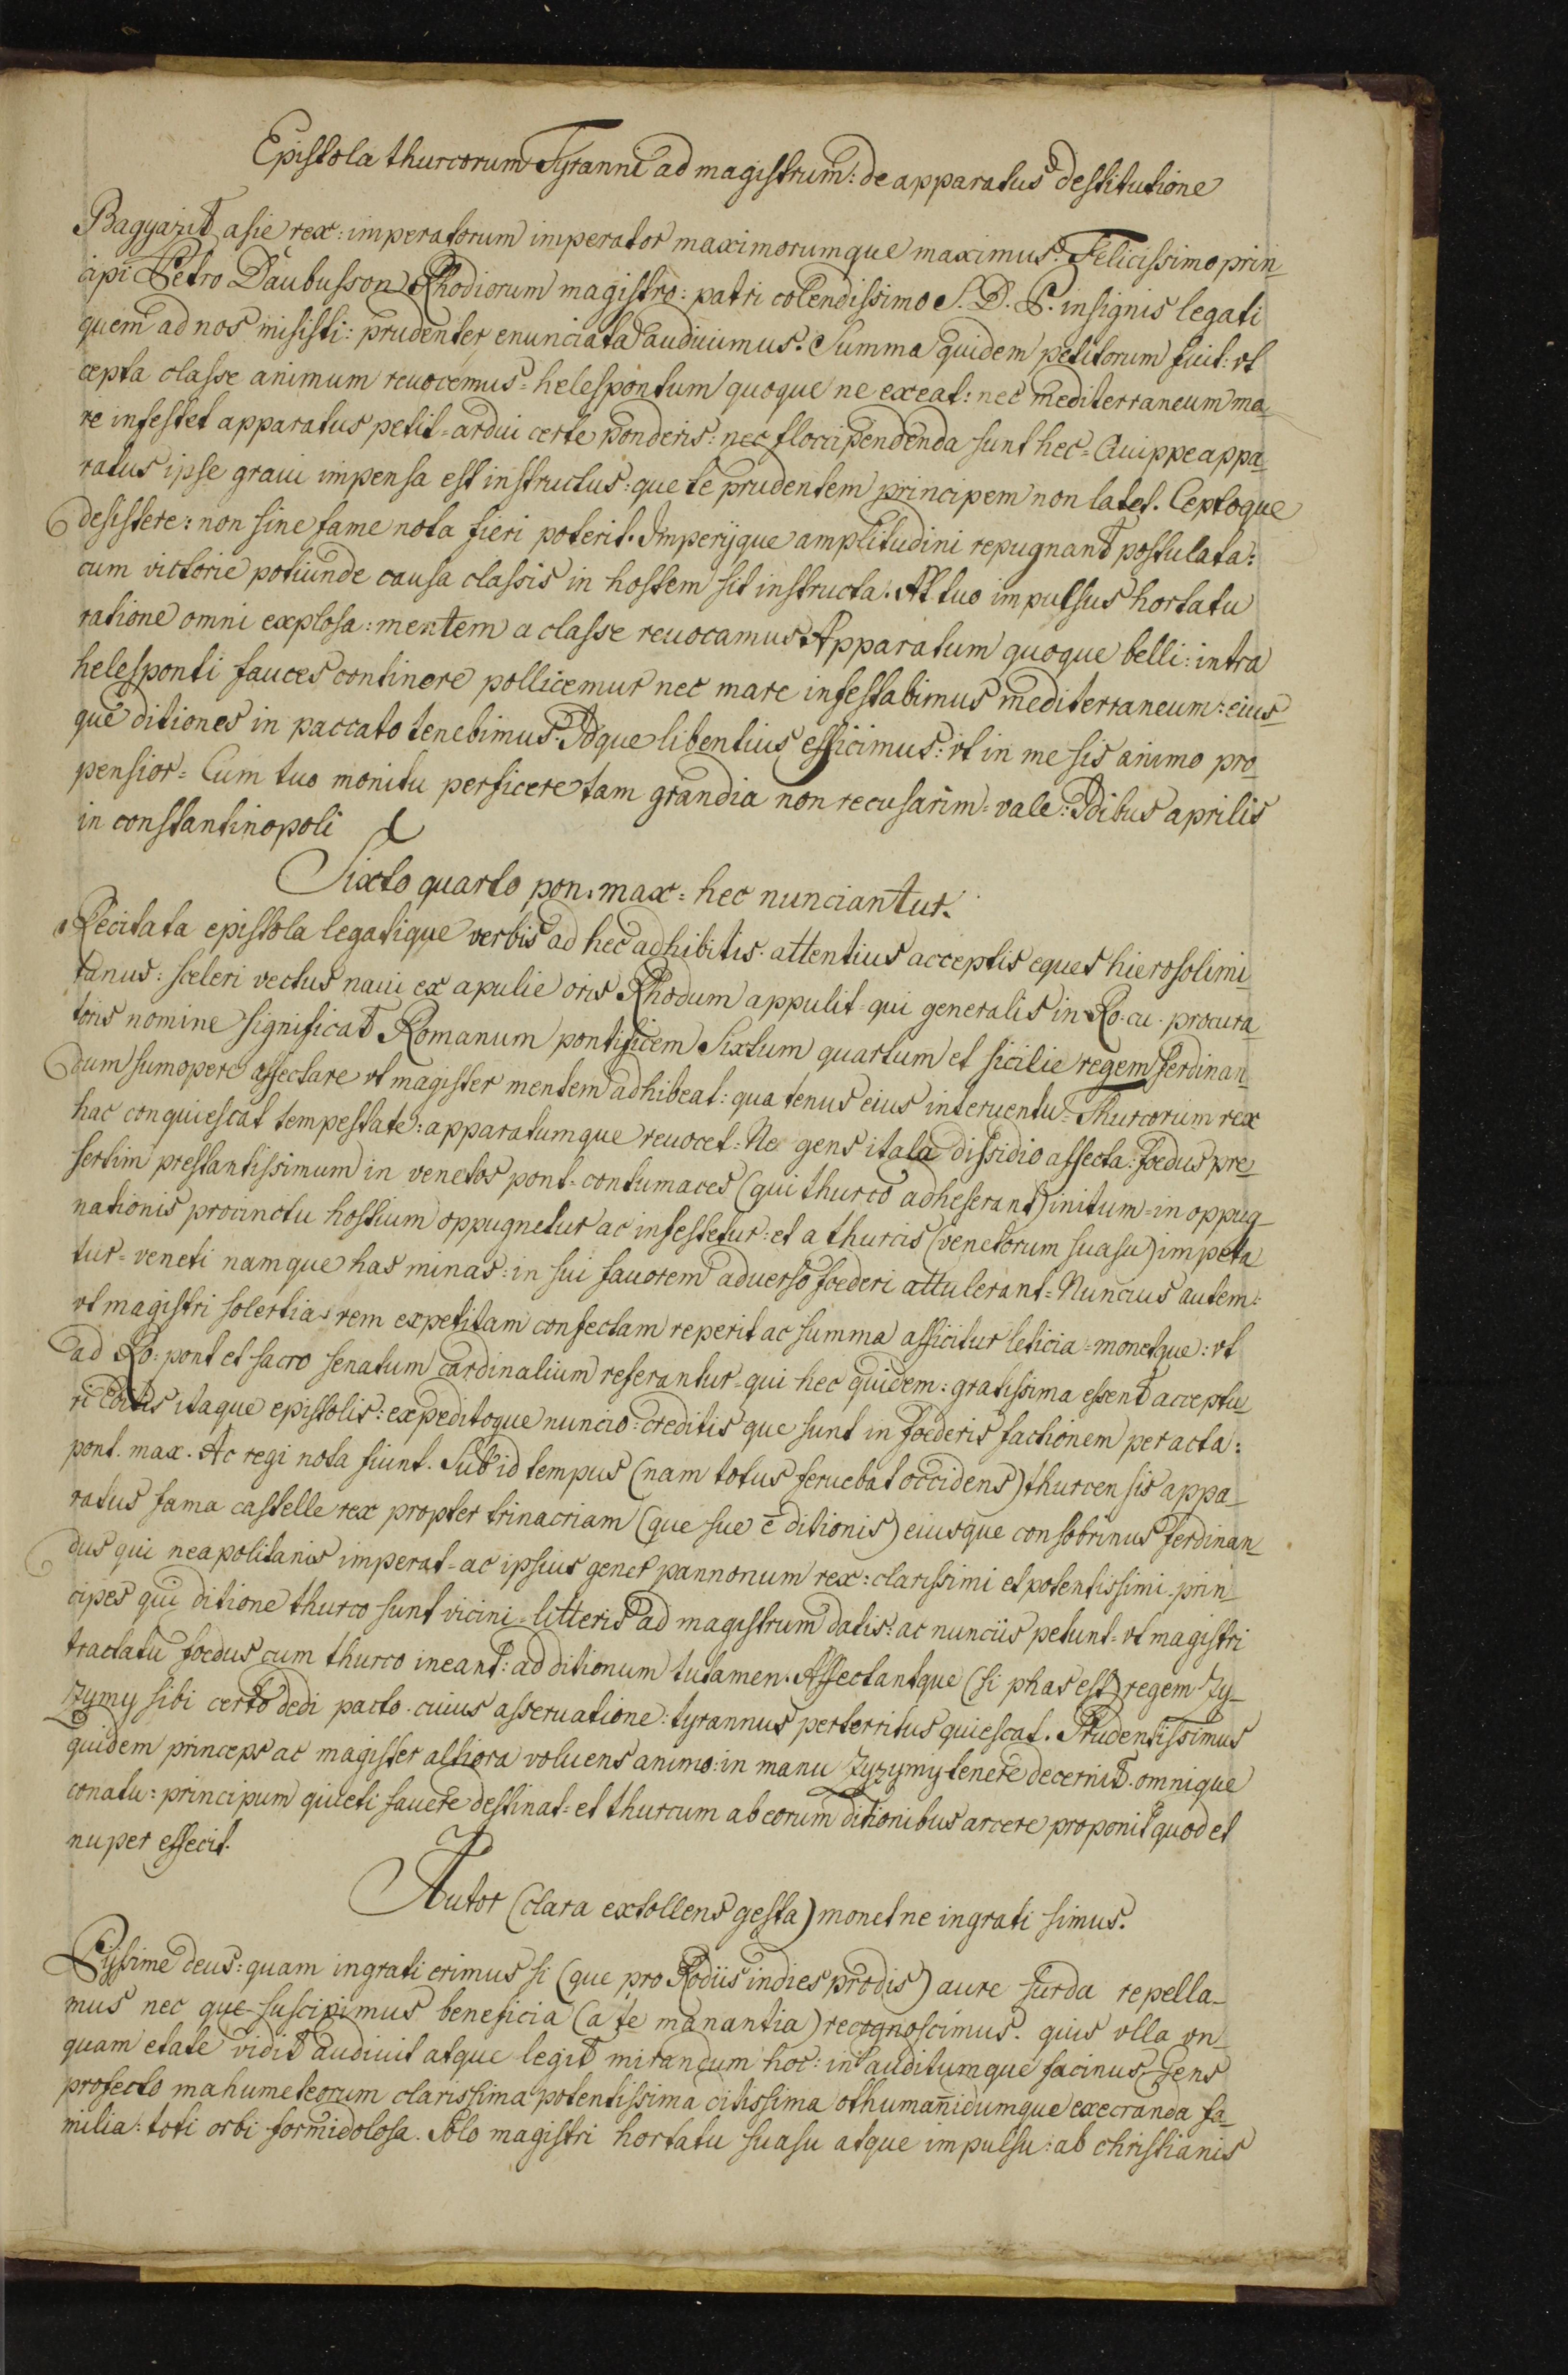 Epistola thurcorum Tyranni ad magistrum: de apparatus destitutione
Bagyazit asie rex: imperatorum imperator maximorumque maximus: Felicissimo prin-
cipi Petro Daubusson Rhodiorum magistro: patri colendissimo S. D. P. insignis legati
quem ad nos misisti: prudenter enunciata audiuimus. Summa quidem petitorum fuit: vt
cepta classe animum reuocemus= helespontum quoque ne exeat: nec mediterraneum ma-
re infestet apparatus petit= ardui certe ponderis: nec floccipendenda sunt hec= Quippe appa-
ratus ipse graui impensa est instructus: que te prudentem principem non latet. Ceptoque
desistere: non sine fame nota fieri poterit. Imperijque amplitudini repugnant postulata:
cum victorie potiunde causa classis in hostem sit instructa: At tuo impulsus hortatu
ratione omni explosa: mentem a classe reuocamus. Apparatum quoque belli: intra
helesponti fauces continere pollicemur nec mare infestabimus mediterraneum: eius-
que ditiones in paccato tenebimus. Idque libentius efficimus: vt in me sis animo pro-
pensior= Cum tuo monitu perficere tam grandia non recusarim= vale: Idibus aprilis
in constantinopoli
Sixto quarto pon. max= hec nunciantur.
Recitata epistola legatique verbis ad hec adhibitis. attentius acceptis eques hierosolimi-
tanus: sceleri vectus naui ex apulie oris Rhodum appulit= qui generalis in Ro. cu. procura-
toris nomine significat Romanum pontificem Sixtum quartum et sicilie regem ferdinan-
dum sumopere affectare vt magister mentem adhibeat: qua tenus eius interuentu= Thurcorum rex
hac conquiescat tempestate: apparatumque reuocet= Ne gens itala dissidio affecta: foedus pre-
sertim prestantissimum in venetos pont= contumaces (qui thurco adheserant) initum= in oppug-
nationis procinctu hostium oppugnetur ac infestetur: et a thurcis (venetorum suasu) impeta-
tur= veneti namque has minas: in sui fauorem aduerso foederi attulerant= Nuncius autem:
vt magistri solertia: rem expetitam confectam reperit ac summa afficitur leticia= monetque: vt
ad Ro: pont et sacro senatum cardinalium referantur= qui hec quidem: gratissima essent acceptu-
ri Editis itaque epistolis: expeditoque nuncio: creditis que sunt in foederis factionem peracta:
pont. max. Ac regi nota fiunt. Sub id tempus (nam totus feruebat occidens) thurcensis appa-
ratus fama castelle rex propter trinacriam (que sue ē ditionis) eiusque consobrinus ferdinan-
dus qui neapolitanis imperat= ac ipsius gener pannonum rex: clarissimi et potentissimi prin-
cipes qui ditione thurco sunt vicini= litteris ad magistrum datis: ac nunciis petunt= vt magistri
tractatu foedus cum thurco ineant: ad ditionum tutamen. Affectantque (si phas est) regem Zy-
zymy sibi certo dedi pacto. cuius asseruatione: tyrannus perterritus quiescat. Prudentissimus
quidem princeps ac magister altiora voluens animo: in manu Zyzymy tenere decernit. omnique
conatu: principum quieti fauere destinat= et thurcum ab eorum ditionibus arcere proponit quod et
nuper effecit.
Autor (clara extollens gesta) monet ne ingrati simus.
Pijssime deus: quam ingrati erimus si (que pro Rodiis indies prodis) aure surda repella-
mus nec que suscipimus beneficia (a te manantia) recognoscimus. quis vlla vn-
quam etate vidit audiuit atque legit mirandum hoc: inauditumque facinus. Gens
profecto mahumeteorum clarissima potentissima citissima othumañidumque execranda fa-
milia: toti orbi formidolosa. Solo magistri hortatu suasu atque impulsu: ab christianis